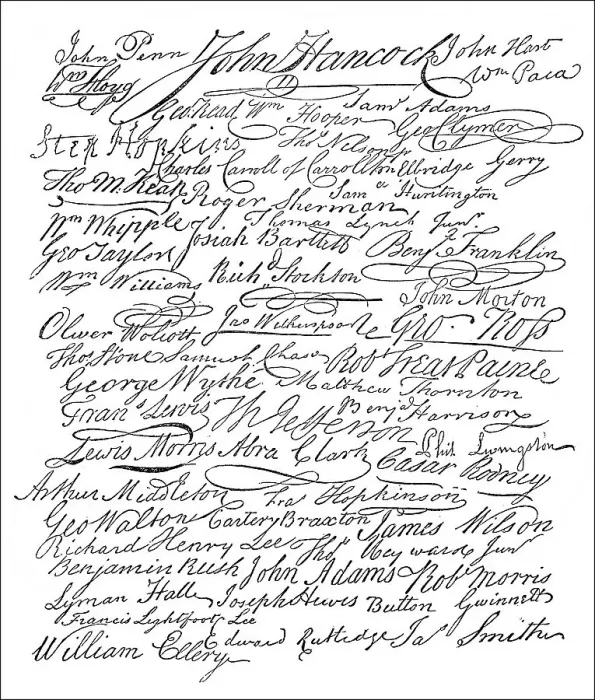 John Penn John Hancock John Hart
Wm Floyd Wm Paca
Geo: Read Wm Hooper Saml Adams
Step Hopkins Thos Nelson jr Geo Clymer
Charles Carroll of Carrollton Elbridge Gerry
Tho M: Kean Roger Sherman Saml Huntington
Wm Whipple Thomas Lynch Junr
Geo Taylor Josiah Bartlett Benj Franklin
Wm Williams Richd Stockton
John Morton
Oliver Wolcott Jno Geo. Ross
Thos Stone Samuel Chase Robt Treat Paine
George Wythe Matthew Thornton
Frans Lewis Th Jefferson Benja Harrison
Lewis Morris Abra Clark Phil. Livingston
Cæsar Rodney
Arthur Middleton Fras Hopkinson
Geo Walton Carter Braxton James Wilson
Richard Henry Lee Thos Heyward Junr
Benjamin Rush John Adams Robt Morris
Lyman Hall Joseph Hewes Button Gwinnett
Francis Lightfoot Lee
William Ellery Edward Rutledge Jas Smith